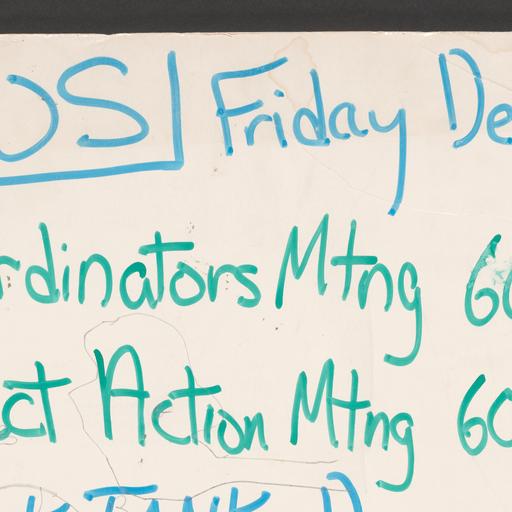 OS Friday De
rdinators Mtng 60
ct Action Mtng 60
TANK D